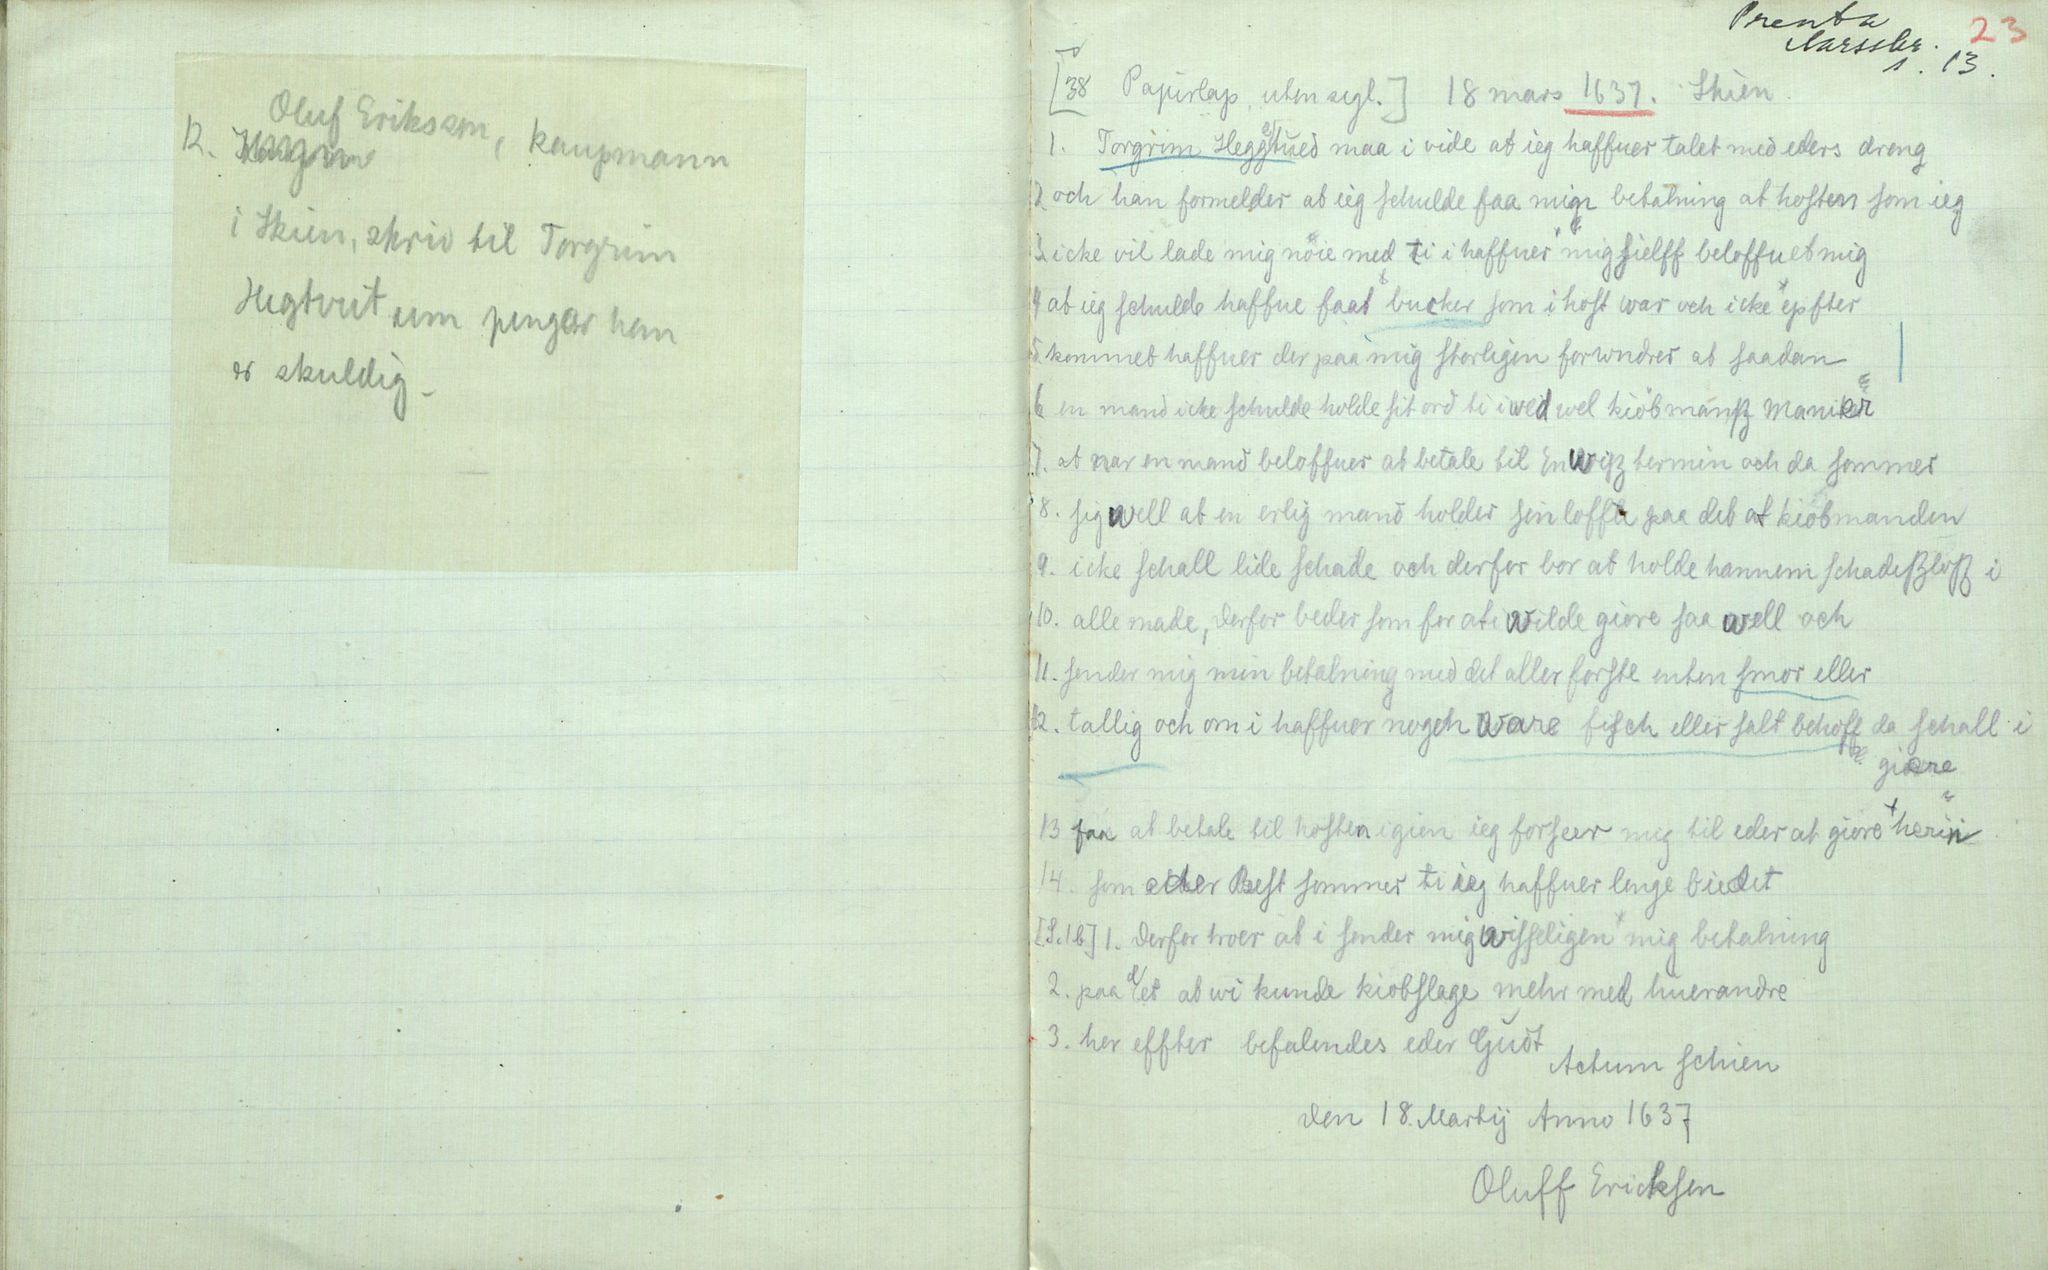 Oluf Eriksson, kaupmann
12.
i Skien, skriv til Torgrim
Hegtveit um pengar han
er skuldig.
Prenta 23
Aarsskr.
s. 13.
[38 Papirlap, uten segl.] 18 mars 1637. Skien.
1. Torgrim Heggtued maa i vide at ieg haffuer talet med eders dreng
2. och han formelder at ieg schulde faa min betalning at hosten som ieg
3. icke vil lade mig nöie med ti i haffuer mig sielff beloffuet mig
4 at ieg schulde haffue faat bucker som i host war och icke epfter
5. kommet haffuer der paa mig storligen forwndrer at saadan
6 en mand icke schulde holde sit ord ti i wed wel kiöbmansz Maniker
7. at nar en mand beloffuer at betale til En wisz termin och da sommer
8. sig well at en erlig mand holder sin loffte paa det at kiobmanden
9. icke schall lide schade och derfor bor at holde hannem schadeszlosz i
10. alle made, derfor beder som for at i wilde giore saa well och
11. sender mig min betalning med det aller forste enten smor eller
12. tallig och om i haffuer nogen ware fisch eller salt behoff da schall i
giære
13 faa at betale til hosten igien ieg forseer mig til eder at giore herin
14. som eder Best sommer ti ieg haffuer lenge biedet
[S. 1b] 1. derfor troer at i sender mig wisseligen mig betalning
2. paa det at wi kunde kiobslage mehr med huerandre
3. her effter befalendes eder Gudt
Actum schien
den 18. Martij Anno 1637
Oluff Ericksen